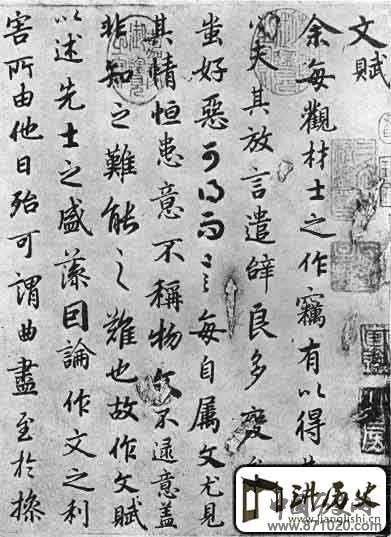 文賦
余每觀材士之作竊有以得
心夫其放言遣辭良多變
蚩好惡可得而言每自属文尤見
其情恒患意不稱物文不逮意蓋
非知之難能之難也故作文賦
以述先士之盛藻因論作文之利
害所由他日殆可謂曲盡至於操
讲历史
www.jianglishi.cn
www.871020.com